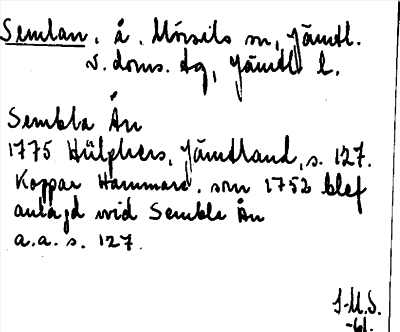 Semlan, å, Mörsils sn, Jämtl.
v. doms. dg, Jämtl. l.
Sembla Ån
1775 Hülphers, Jämtland, s. 127.
Koppar Hammare, som 1752 blef
anlagd wid Sembla Ån
a.a. s. 127.
-61.